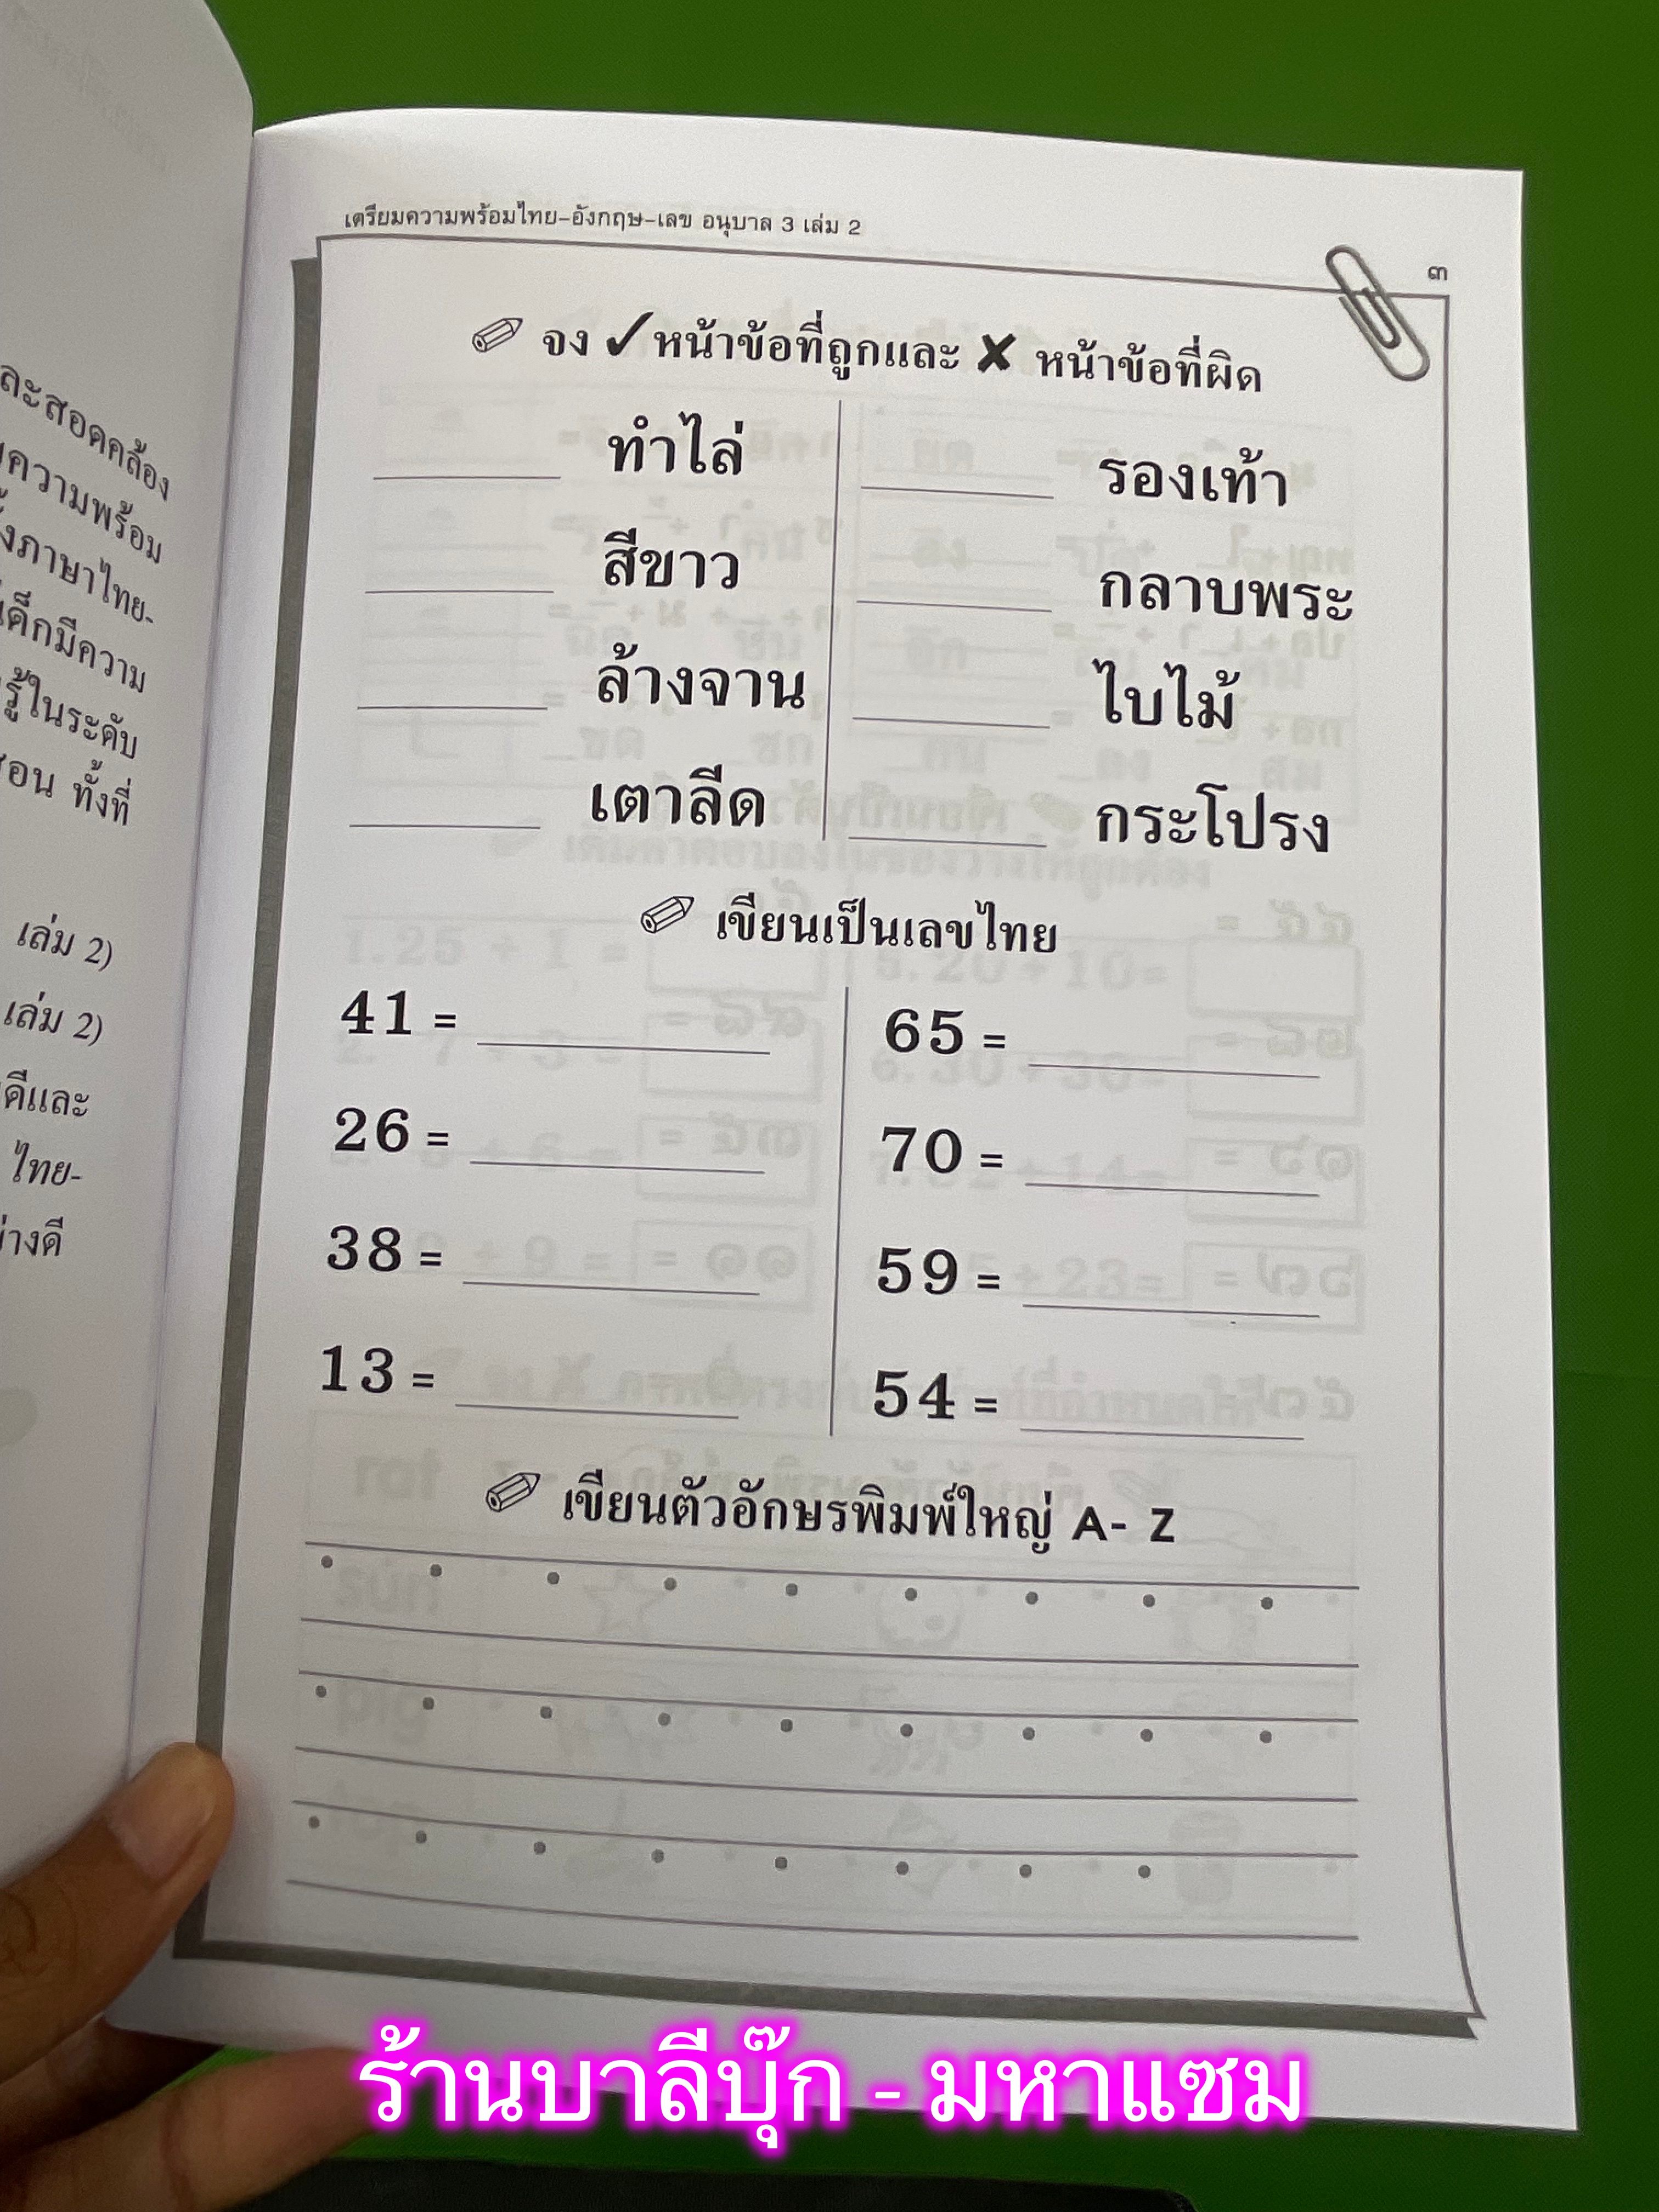 ละสอดคล้อง
ความพร้อม
ภาษาไทย-
เด็กมีความ
รู้ในระดับ
สอน ทั้งที่
เล่ม 2)
เล่ม 2)
ดีและ
ไทย-
่างดี
เตรียมความพร้อมไทย-อังกฤษ-เลข อนุบาล 3 เล่ม 2
๓
จง ✓ หน้าข้อที่ถูกและ ✗ หน้าข้อที่ผิด
______ ทำไล่ ______ รองเท้า
______ สีขาว ______ กลาบพระ
______ ล้างจาน ______ ไบไม้
______ เตาลีด ______ กระโปรง
เขียนเป็นเลขไทย
41 = ______ 65 = ______
26 = ______ 70 = ______
38 = ______ 59 = ______
13 = ______ 54 = ______
เขียนตัวอักษรพิมพ์ใหญ่ A- Z
ร้านบาลีบุ๊ก - มหาแซม